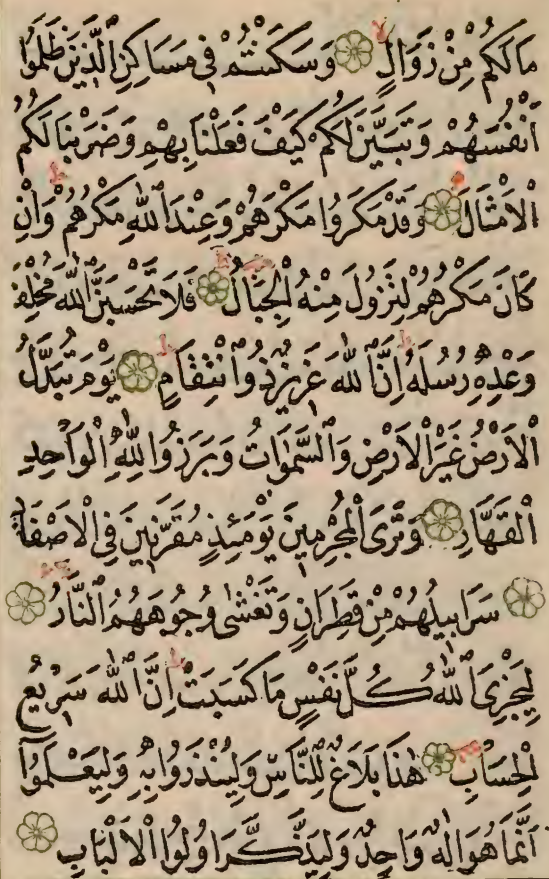 مَا لَكُمْ مِنْ زَوَالٍ وَسَكَنْتُمْ فِي مَسَاكِنِ الَّذِينَ ظَلَمُوا
أَنْفُسَهُمْ وَتَبَيَّنَ لَكُمْ كَيْفَ فَعَلْنَا بِهِمْ وَضَرَبْنَا لَكُمُ
الْأَمْثَالَ وَقَدْ مَكَرُوا مَكْرَهُمْ وَعِنْدَ اللّٰهِ مَكْرُهُمْ وَإِنْ
كَانَ مَكْرُهُمْ لِتَزُولَ مِنْهُ الْجِبَالُ فَلَا تَحْسَبَنَّ اللّٰهَ مُخْلِفَ
وَعْدِهِ رُسُلَهُ إِنَّ اللّٰهَ عَزِيزٌ ذُو انْتِقَامٍ يَوْمَ تُبَدَّلُ
الْأَرْضُ غَيْرَ الْأَرْضِ وَالسَّمٰوَاتُ وَبَرَزُوا لِلّٰهِ الْوَاحِدِ
الْقَهَّارِ وَتَرَى الْمُجْرِمِينَ يَوْمَئِذٍ مُقَرَّنِينَ فِي الْأَصْفَادِ
سَرَابِيلُهُمْ مِنْ قَطِرَانٍ وَتَغْشٰى وُجُوهَهُمُ النَّارُ
لِيَجْزِيَ اللّٰهُ كُلَّ نَفْسٍ مَا كَسَبَتْ إِنَّ اللّٰهَ سَرِيعُ
الْحِسَابِ هٰذَا بَلَاغٌ لِلنَّاسِ وَلِيُنْذَرُوا بِهِ وَلِيَعْلَمُوا
أَنَّمَا هُوَ إِلٰهٌ وَاحِدٌ وَلِيَذَّكَّرَ أُولُوا الْأَلْبَابِ